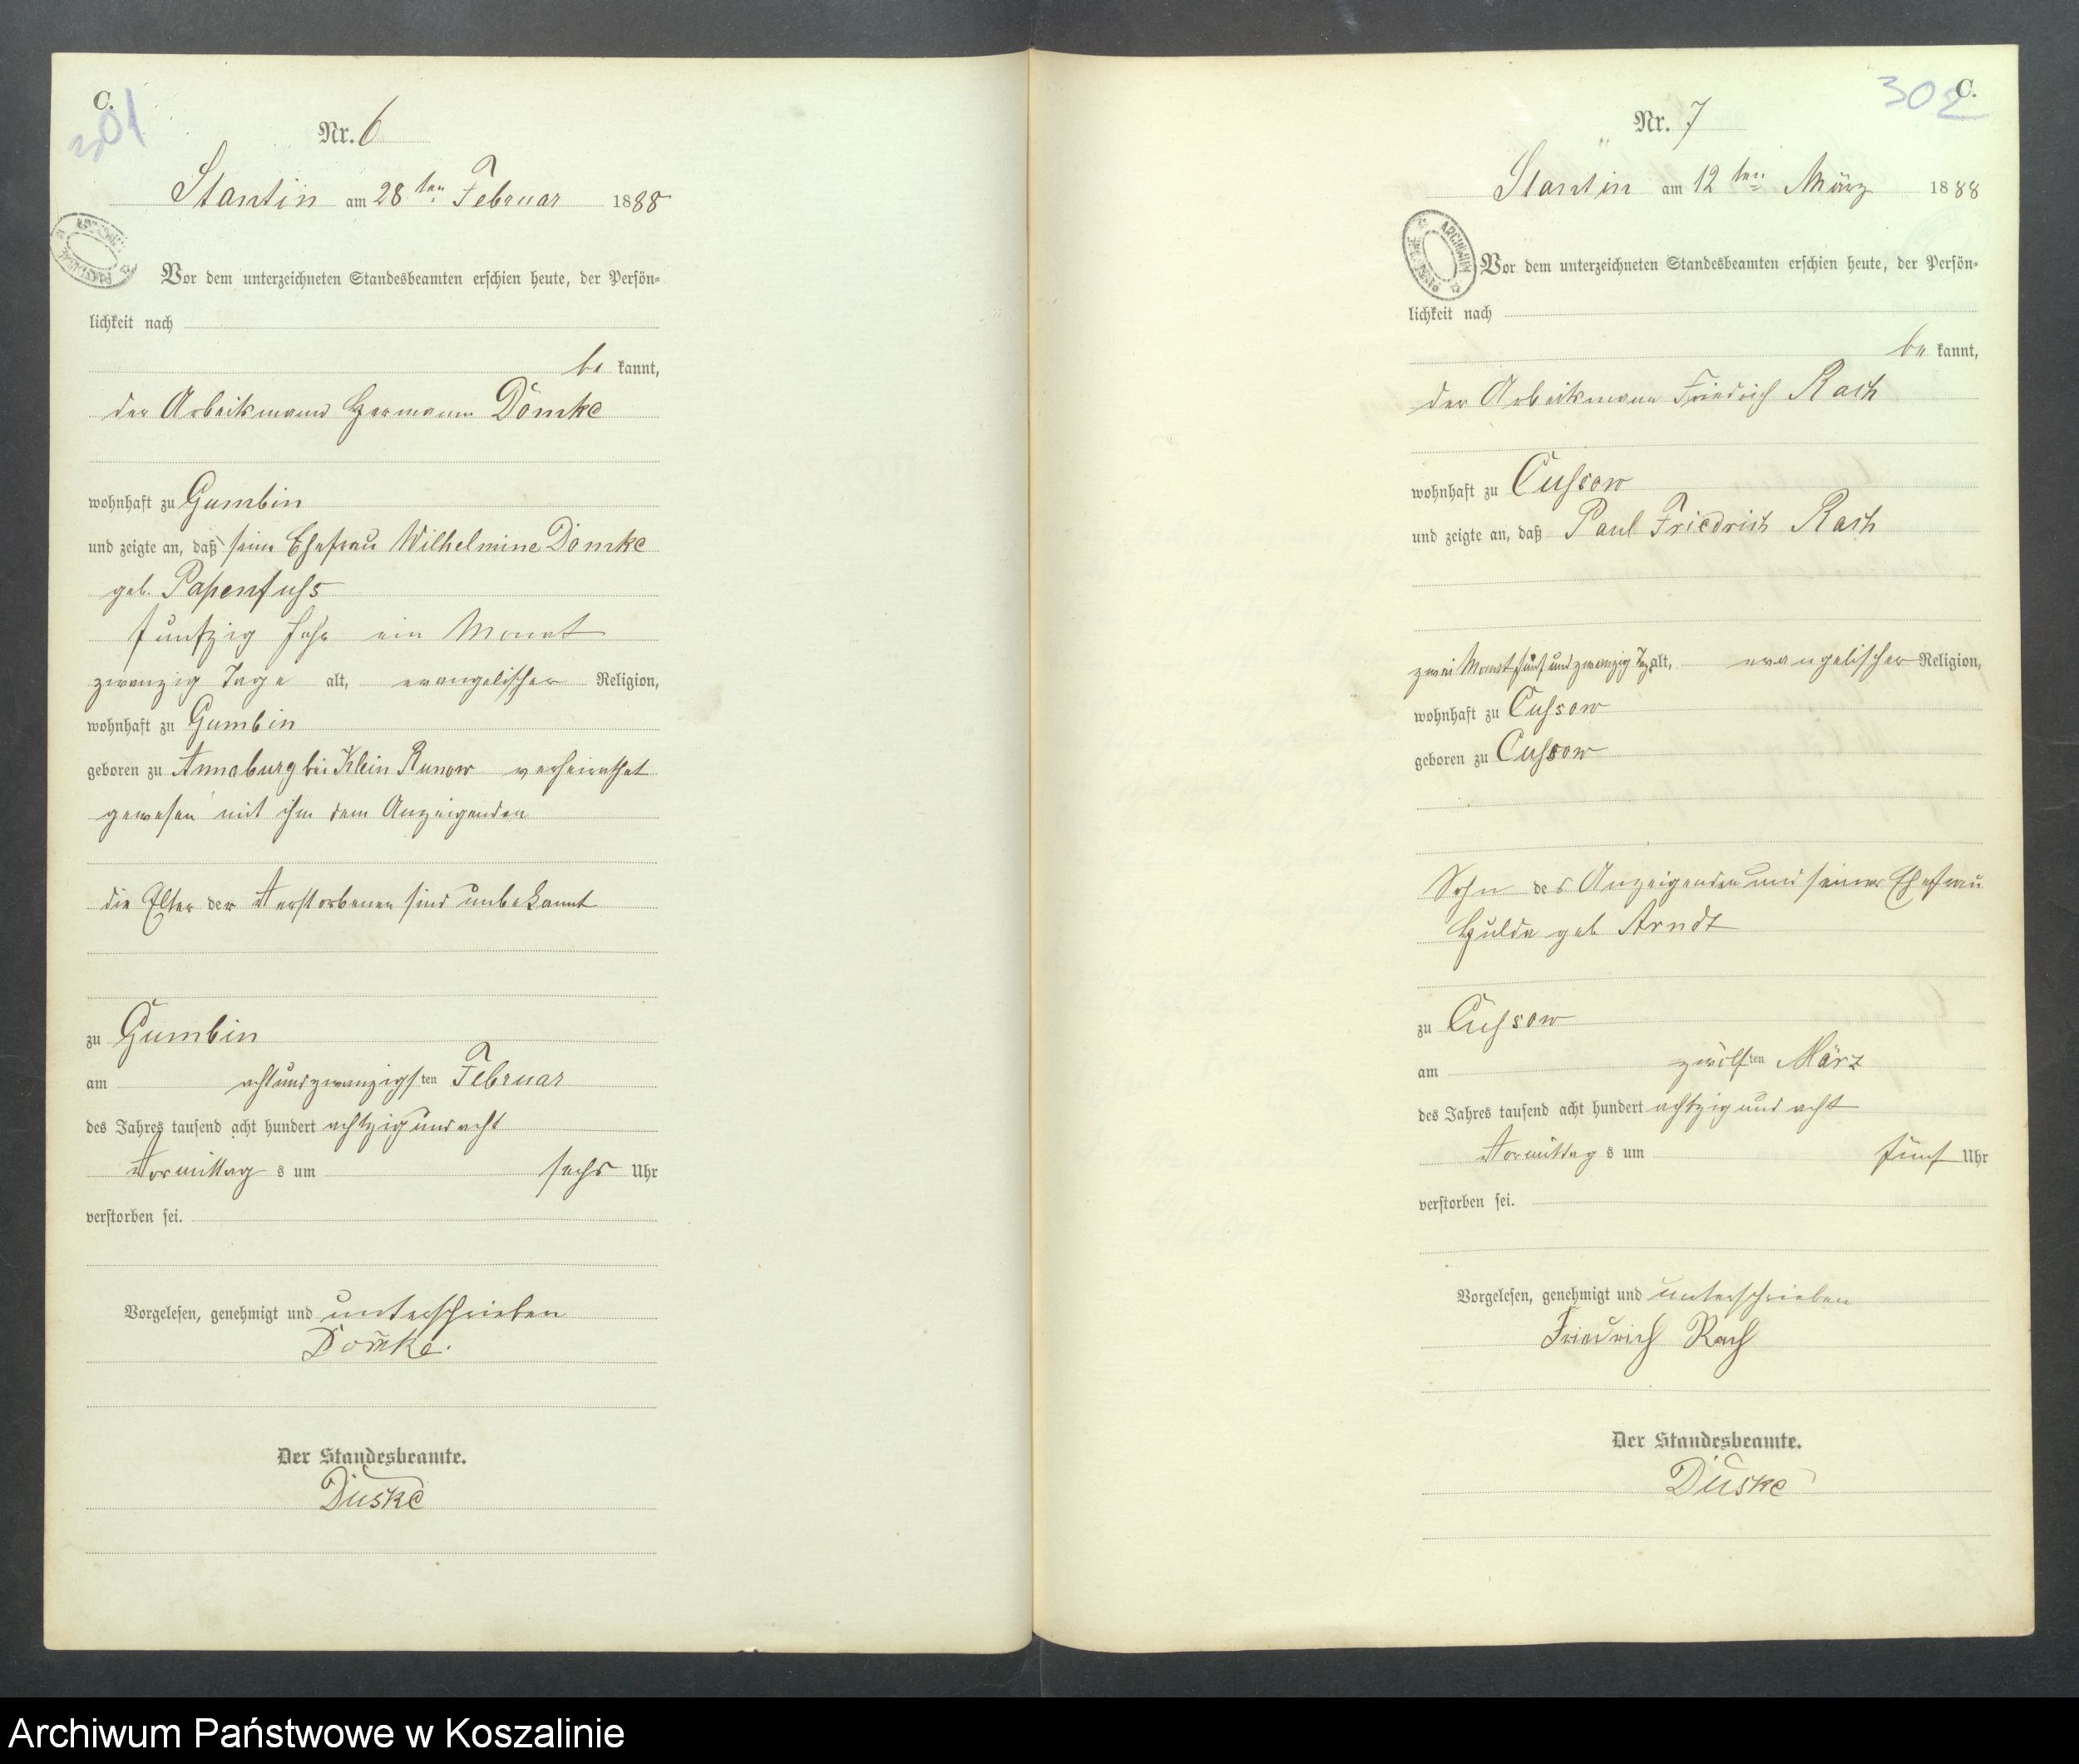 C.
301
Nr. 6
Stantin am 28ten Februar 1888
Vor dem unterzeichneten Standesbeamten erschien heute, der Persön-
lichkeit nach
be kannt,
der Arbeitsmann Hermann Dömke
wohnhaft zu Gumbin
und zeigte an, daß seine Ehefrau Wilhelmine Dömke
geb. Papenfuhs
fünfzig Jahr ein Monat
zwanzig Tage alt, evangelischer Religion,
wohnhaft zu Gumbin
geboren zu Annaburg bei Klein Runow verheirathet
gewesen mit ihm dem Anzeigenden
die Elter der Verstorbenen sind unbekannt
zu Gumbin
am achtundzwanzigsten Februar
des Jahres tausend acht hundert achtzig und acht
Vormittag s um sechs Uhr
verstorben sei.
Vorgelesen, genehmigt und unterschrieben
Dömke.
Der Standesbeamte.
Düske
C.
302
Nr. 7
Stantin am 12ten März 1888
ARCHIWUM
Vor dem unterzeichneten Standesbeamten erschien heute, der Persön-
lichkeit nach
be kannt,
der Arbeitsmann Friedrich Rach
wohnhaft zu Cuhsow
und zeigte an, daß Paul Friedrich Rach
zwei Monat fünf und zwanzig Tage alt, evangelischer Religion,
wohnhaft zu Cuhsow
geboren zu Cuhsow
Sohn des Anzeigenden und seiner Ehefrau
Hulda geb Arndt
zu Cuhsow
am zwölften März
des Jahres tausend acht hundert achtzig und acht
Vormittag s um fünf Uhr
verstorben sei.
Vorgelesen, genehmigt und unterschrieben
Friedrich Rach
Der Standesbeamte.
Düske
Archiwum Państwowe w Koszalinie